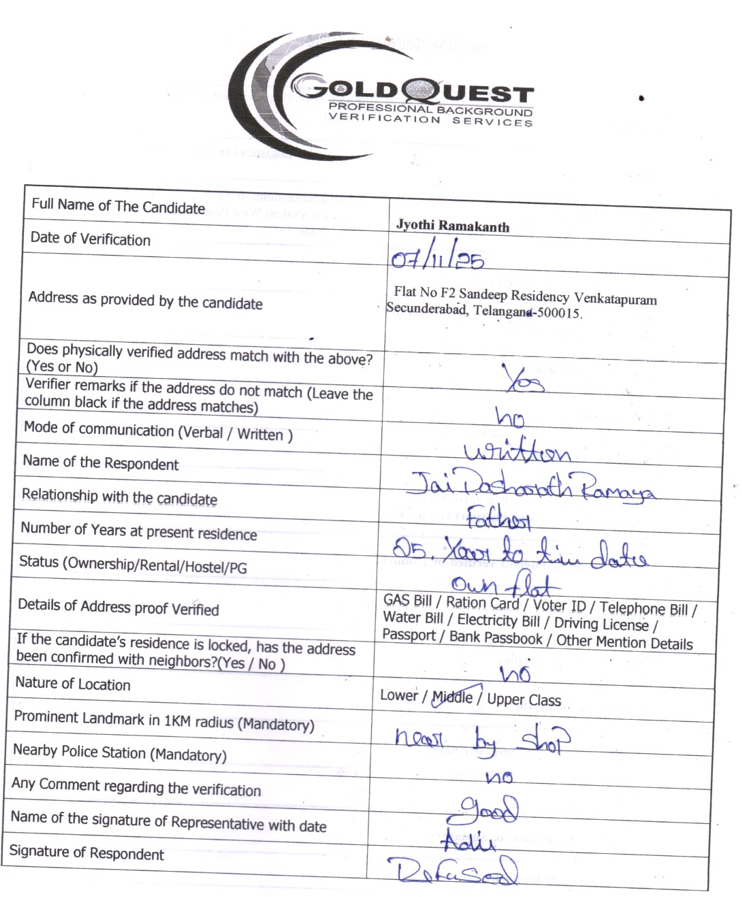 GOLDQUEST
PROFESSIONAL BACKGROUND
VERIFICATION SERVICES
Full Name of The Candidate
Jyothi Ramakanth
Date of Verification
07/11/25
Address as provided by the candidate
Flat No F2 Sandeep Residency Venkatapuram
Secunderabad, Telangana-500015.
Does physically verified address match with the above?
(Yes or No)
Yes
Verifier remarks if the address do not match (Leave the
column black if the address matches)
no
Mode of communication (Verbal / Written )
written
Name of the Respondent
Jai Dasharath Ramaya
Relationship with the candidate
Father
Number of Years at present residence
25. Year to tim date
Status (Ownership/Rental/Hostel/PG
own flat
Details of Address proof Verified
GAS Bill / Ration Card / Voter ID / Telephone Bill /
Water Bill / Electricity Bill / Driving License /
Passport / Bank Passbook / Other Mention Details
If the candidate's residence is locked, has the address
been confirmed with neighbors?(Yes / No )
no
Nature of Location
Lower / Middle / Upper Class
Prominent Landmark in 1KM radius (Mandatory)
near by shop
Nearby Police Station (Mandatory)
no
Any Comment regarding the verification
good
Name of the signature of Representative with date
Signature of Respondent
Refused